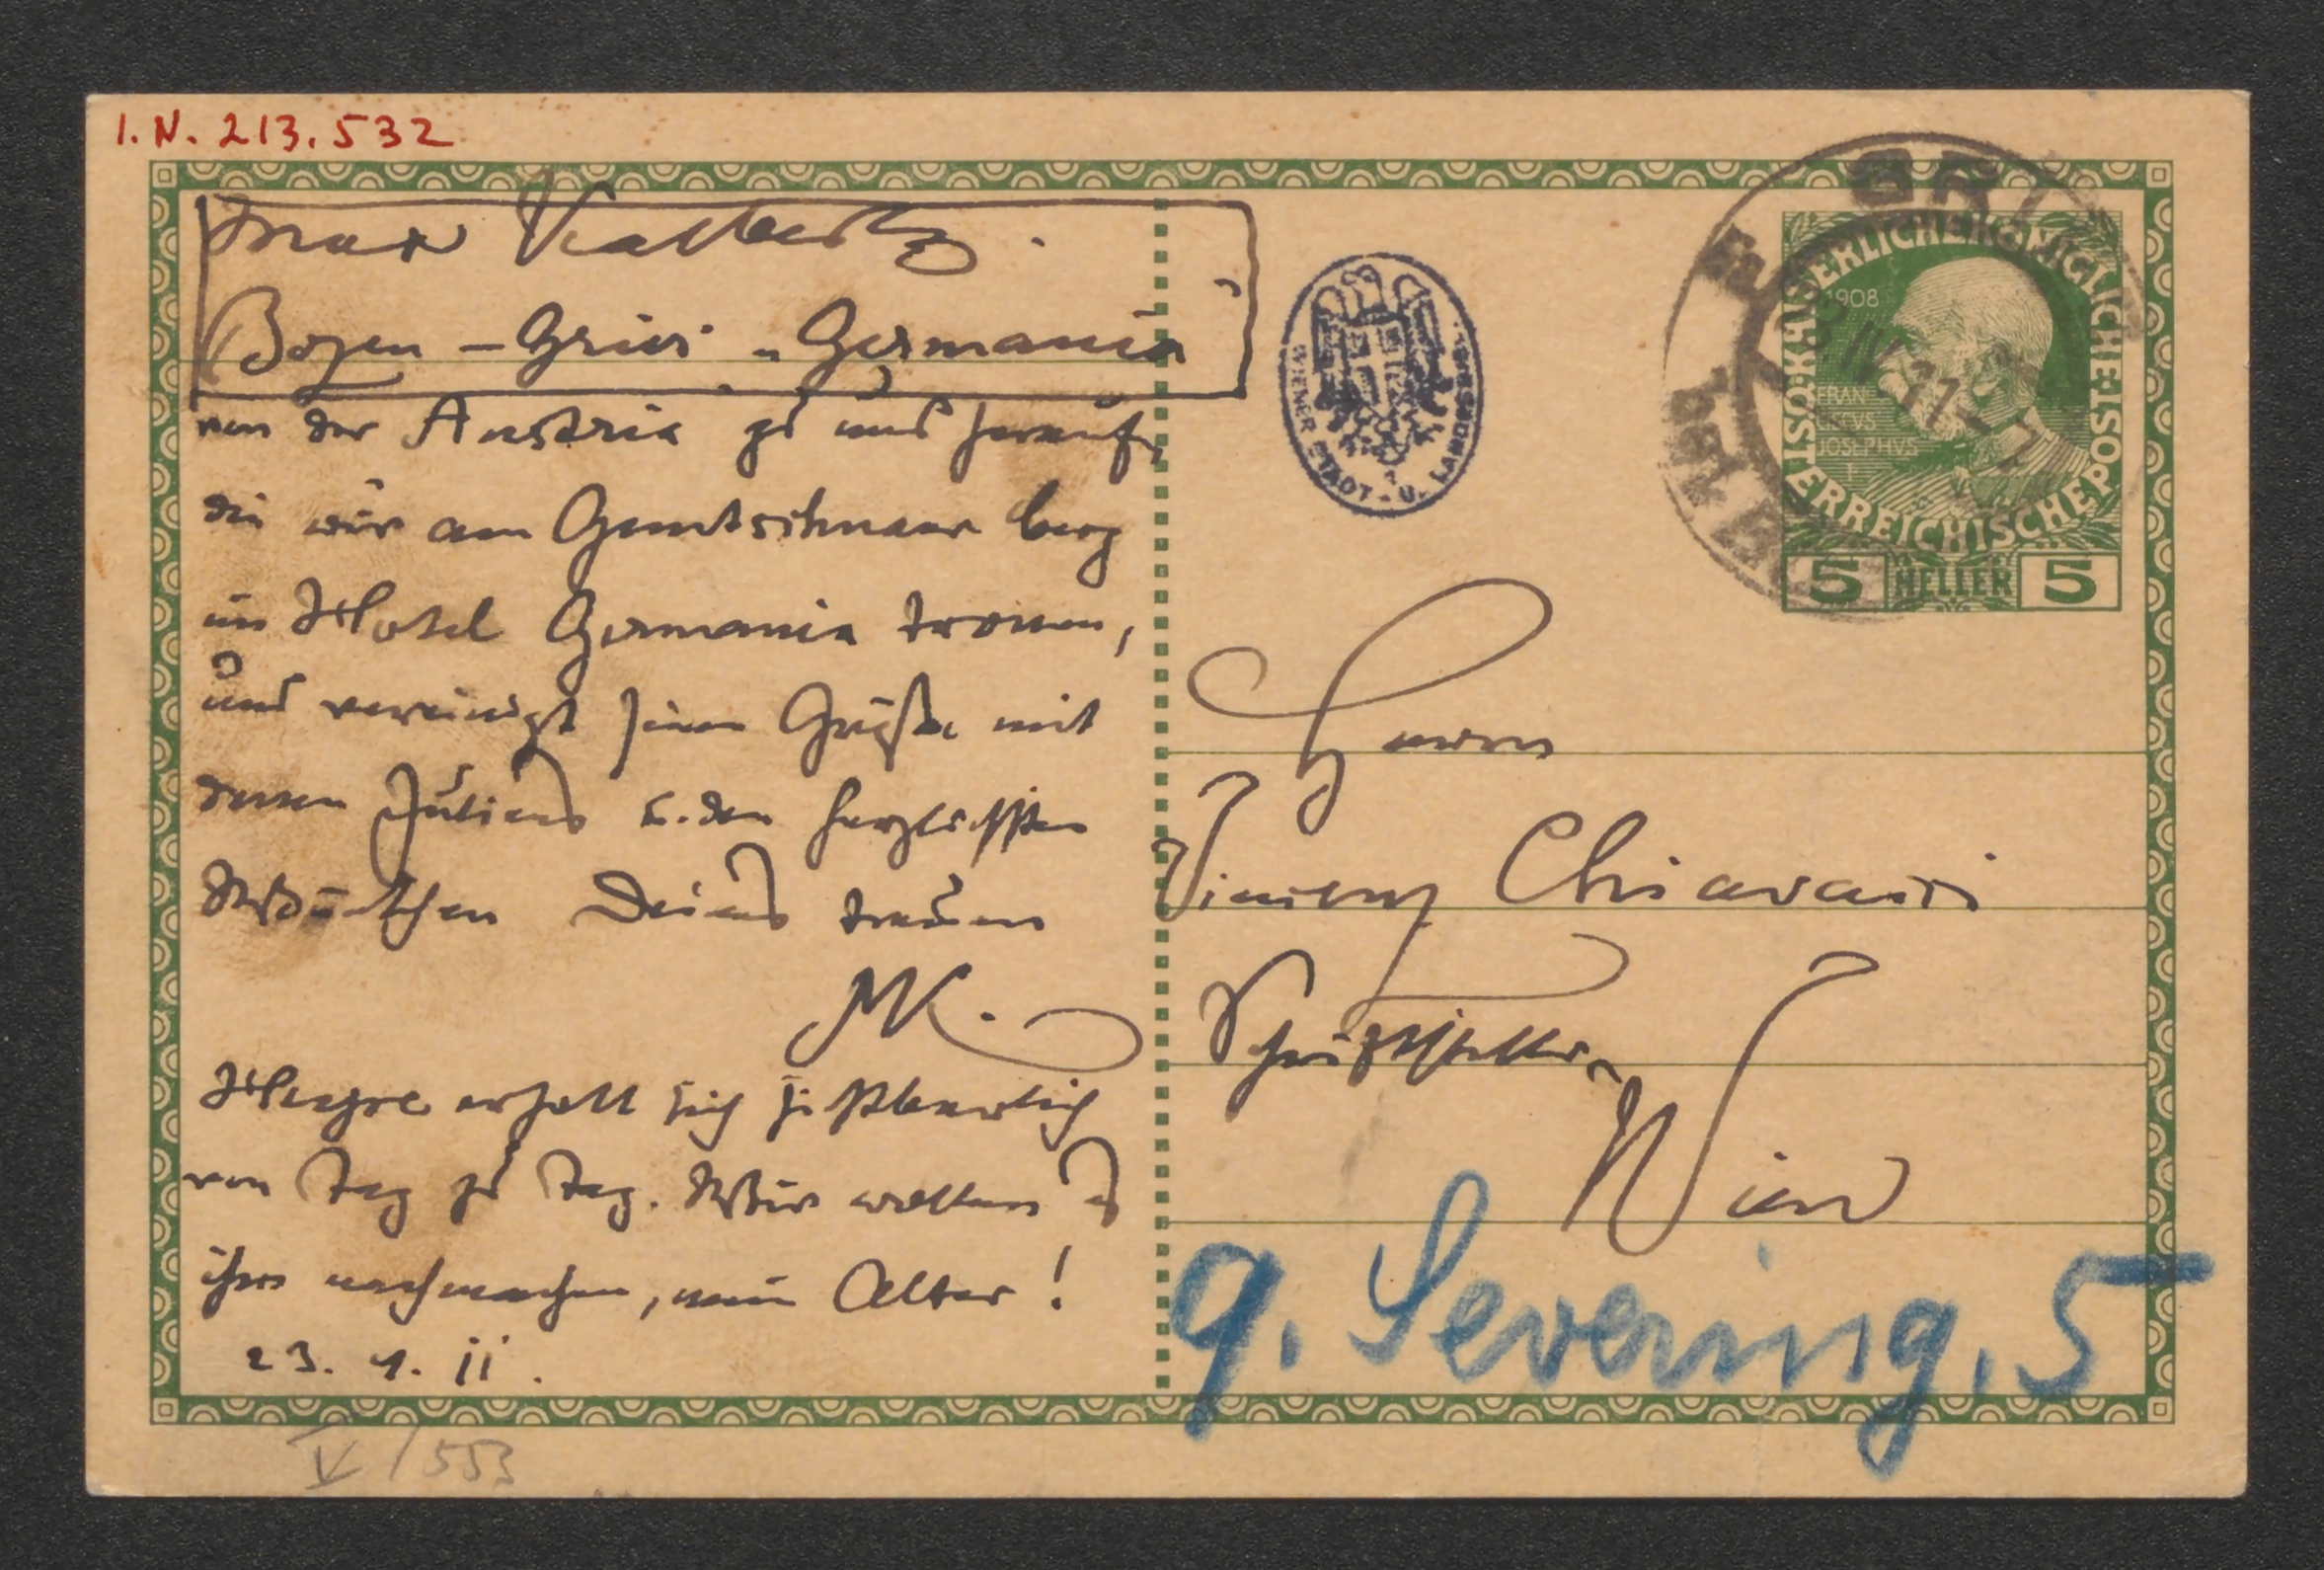 I.N. 213.532
Max Kalbeck.
Bozen - Gries „Germania"
von der Austria zu uns herauf,
die wir am Guntschnaer berg
im Hotel Germania tronen,
und vereinigt seine Grüße mit
denen Juliens u. den herzlichsten
Wünschen Deines treuen
MK.
Heyse erholt sich
von Tag zu Tag. Wir wollen es
ihm nachmachen, mein Alter!
23. 4. 11.
V/553
WIENER STADT- U. LANDESBIBL
GRI
3 IV 11-7
KAISERLICHE KÖNIGLICHE
ÖSTERREICHISCHE POST
1908
FRANCISCVS
JOSEPHVS
I
5 HELLER 5
Herrn
Vincenz Chiavacci
Schriftsteller,
Wien
9. Severing. 5